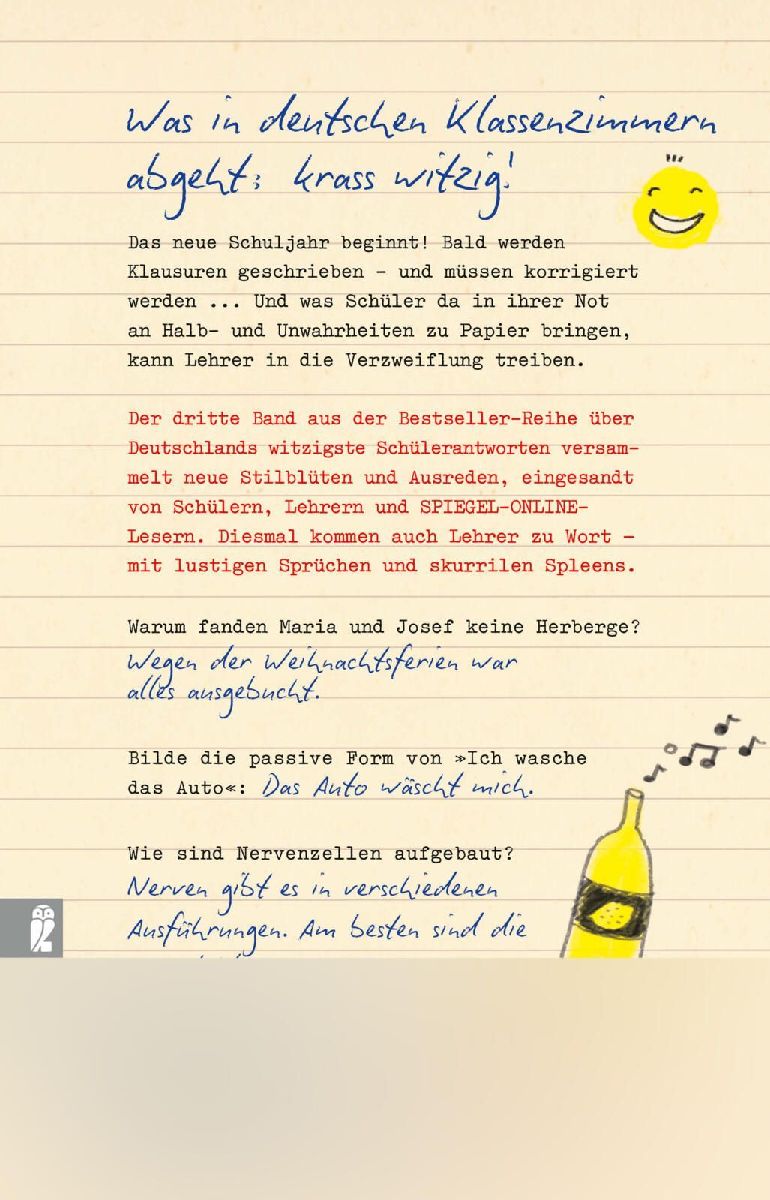 Was in deutschen Klassenzimmern
abgeht: krass witzig!
Das neue Schuljahr beginnt! Bald werden
Klausuren geschrieben – und müssen korrigiert
werden ... Und was Schüler da in ihrer Not
an Halb- und Unwahrheiten zu Papier bringen,
kann Lehrer in die Verzweiflung treiben.
Der dritte Band aus der Bestseller-Reihe über
Deutschlands witzigste Schülerantworten versam-
melt neue Stilblüten und Ausreden, eingesandt
von Schülern, Lehrern und SPIEGEL-ONLINE-
Lesern. Diesmal kommen auch Lehrer zu Wort –
mit lustigen Sprüchen und skurrilen Spleens.
Warum fanden Maria und Josef keine Herberge?
Wegen der Weihnachtsferien war
alles ausgebucht.
Bilde die passive Form von »Ich wasche
das Auto«: Das Auto wäscht mich.
Wie sind Nervenzellen aufgebaut?
Nerven gibt es in verschiedenen
Ausführungen. Am besten sind die